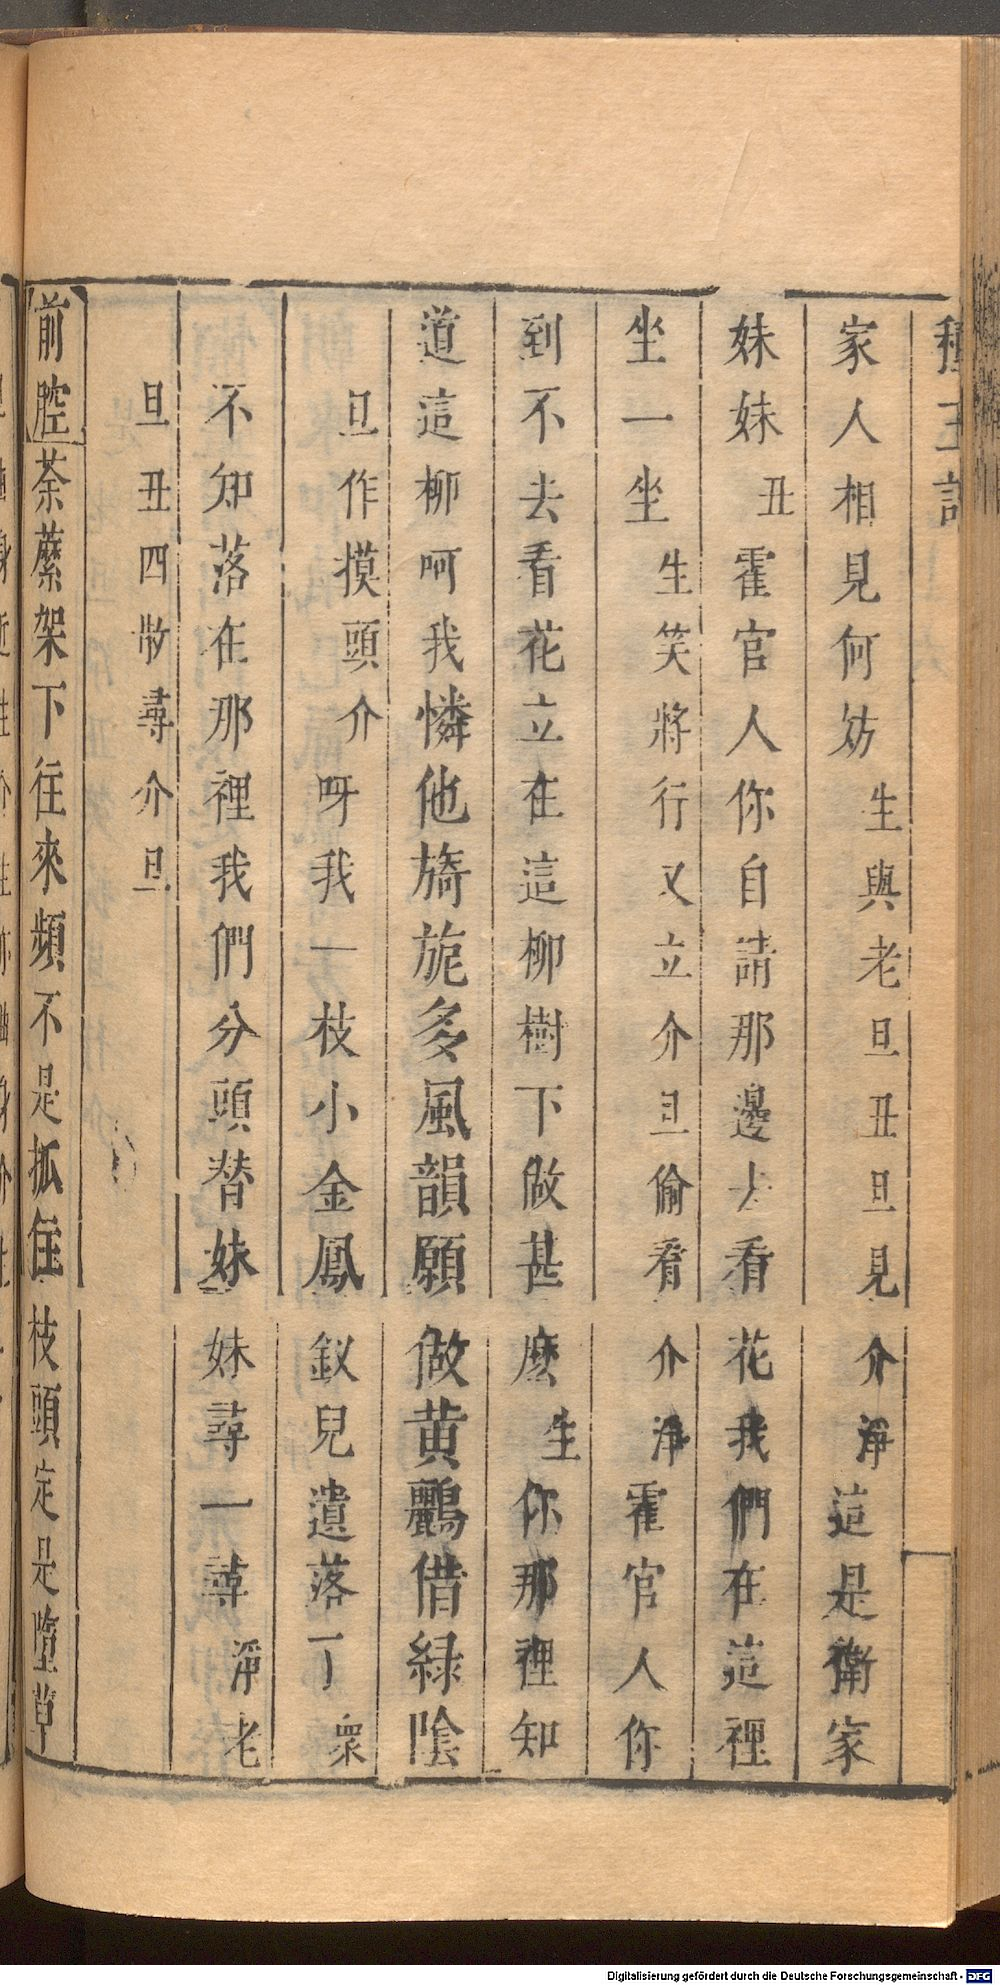 種玉記
家人相見何妨生與老旦丑旦見介淨這是衛家
妹妹丑霍官人你自請那邊去看花我們在這裡
坐一坐生笑將行又立介旦偷看介淨霍官人你
到不去看花立在這柳樹下做甚麽生你那裡知
道這柳呵我憐他旖旎多風韻願做黄鸝借緑陰
旦作摸頭介呀我一枝小金鳳釵兒遺落了衆
不知落在那裡我們分頭替妹妹尋一尋淨老
旦丑四散尋介旦
前腔荼蘼架下往來頻不是抓住枝頭定是墮草
Digitalisierung gefördert durch die Deutsche Forschungsgemeinschaft - DFG